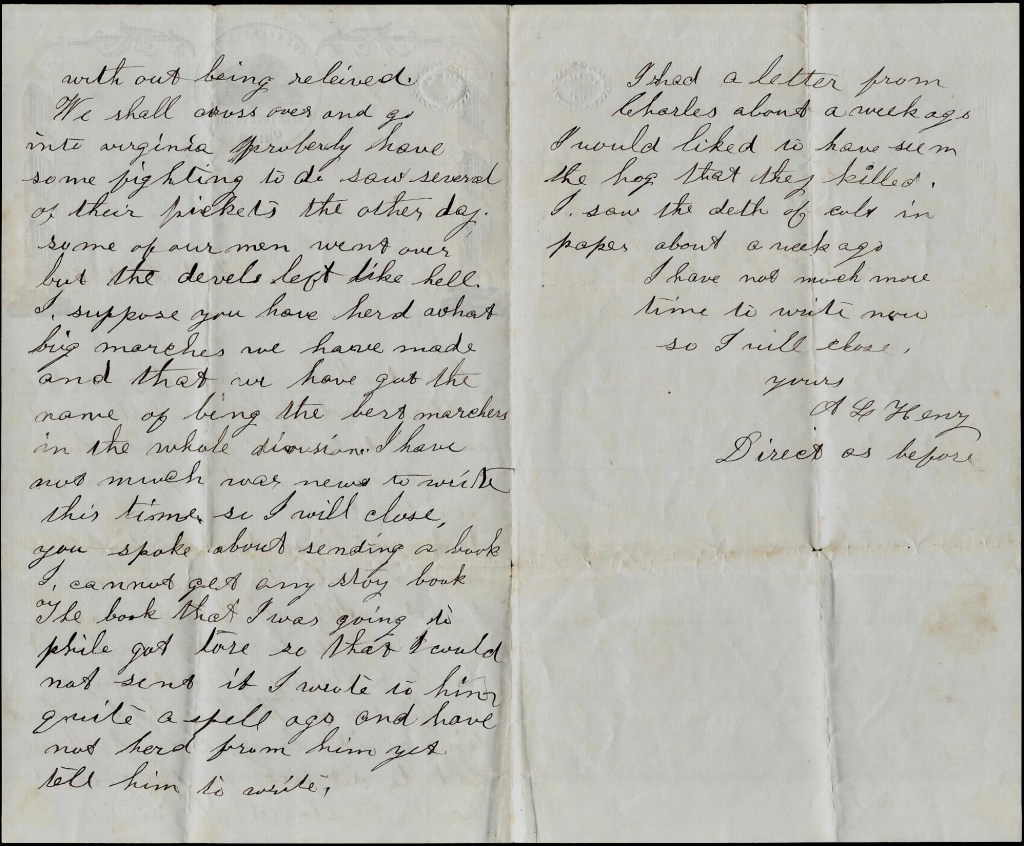 with out being releived.
We shall cross over and go
into virginia proberly have
some fighting to do saw several
of their pickets the other day.
some of our men went over
but the devels left like hell.
I. suppose you have herd what
big marches we have made
and that we have got the
name of bing the best marchers
in the whole division. I have
not much war news to write
this time. so I will close,
you spoke about sending a book
I. cannot get any stoy book
The book that I was going to
phile got tore so that I could
not sent it I wrote to him
quite a spell ago and have
not herd from him yet
tell him to write.
I had a letter from
Charles about a week ago
I would liked to have seem
the hog that they killed.
I. saw the deth of colt in
paper about a week ago
I have not much more
time to write now
so I will close.
yours
A L Henry
Direct as before